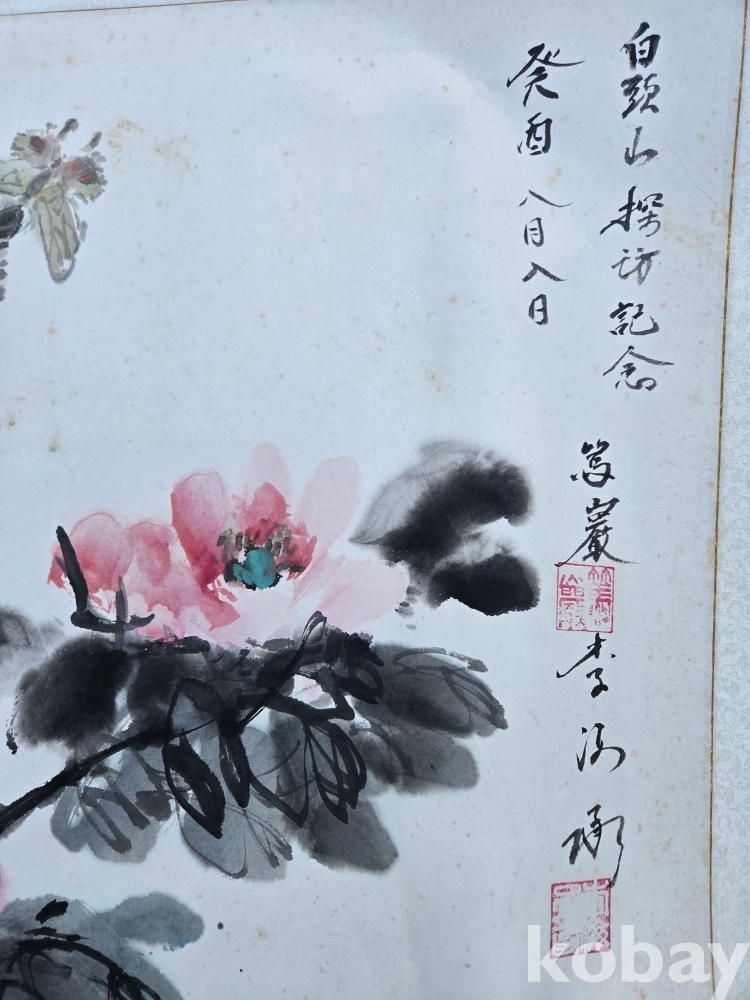 白頭山探訪記念
癸酉八月八日
篤巖
李
kobay